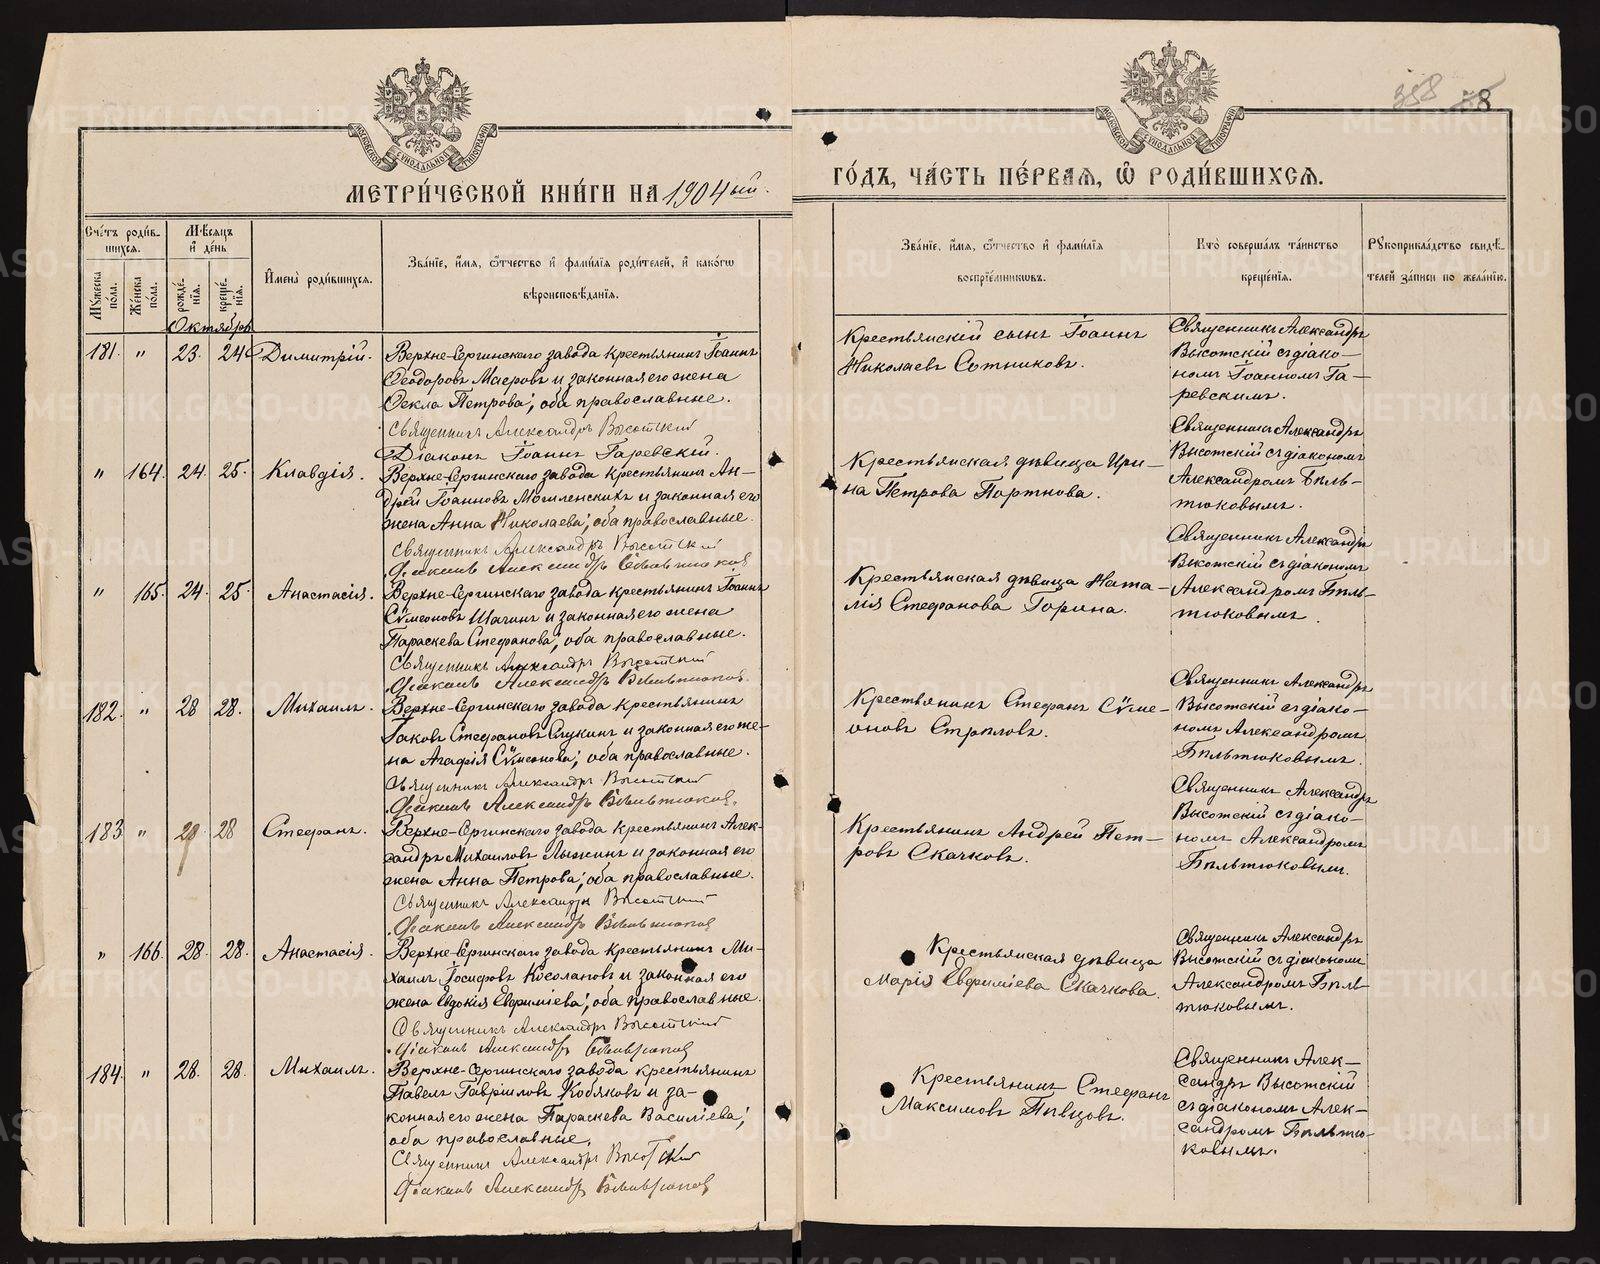 358 8
МЕТРИ́ЧЕСКОЙ КНИ́ГИ НА 1904ый.
ГО́ДЪ, ЧА́СТЬ ПЕ́РВАѦ, Ѽ РОДИ́ВШИХСѦ.
Сче́тъ роди́в-
шихсѧ.
Мꙋ́жеска по́ла.
Же́нска по́ла.
Мѣ́сѧцъ
и҆ де́нь
рожде́-
нїѧ.
креще́-
нїѧ.
И҆мена̀ роди́вшихсѧ.
Зва́нїе, и҆́мѧ, ѻ҆́тчество и҆ фами́лїѧ роди́телей, и҆ како́гѡ
вѣроисповѣ́данїѧ.
Зва́нїе, и҆́мѧ, ѻ҆́тчество и҆ фами́лїѧ
воспрїе́мниковъ.
Кто̀ соверша́лъ та́инство
креще́нїѧ.
Рꙋкоприкла́дство свидѣ́-
телей за́писи по жела́нїю.
Октябрь
181. " 23. 24 Димитрій.
Верхне-Сергинскаго завода крестьянинъ Іоаннъ
Ѳеодоровъ Маеровъ и законная его жена
Ѳекла Петрова; оба православные.
Священникъ Александръ Высотскій
Діаконъ Іоаннъ Гаревскій.
Крестьянскій сынъ Іоаннъ
Николаевъ Сотниковъ.
Священникъ Александръ
Высотскій съ діако-
номъ Іоанномъ Га-
ревскимъ.
" 164. 24. 25. Клавдія.
Верхне-Сергинскаго завода крестьянинъ Ан-
дрей Іоанновъ Могиленскихъ и законная его
жена Анна Николаева; оба православные.
Священникъ Александръ Высотскій
Діаконъ Александръ Бѣльтюковъ
Крестьянская дѣвица Ири-
на Петрова Портнова.
Священникъ Александръ
Высотскій съ діакономъ
Александромъ Бѣль-
тюковымъ.
" 165. 24. 25. Анастасія.
Верхне-Сергинскаго завода крестьянинъ Іоаннъ
Сѵмеоновъ Шагинъ и законная его жена
Параскева Стефанова; оба православные.
Священникъ Александръ Высотскій
Діаконъ Александръ Бѣльтюковъ.
Крестьянская дѣвица Ната-
лія Стефанова Горина.
Священникъ Александръ
Высотскій съ діакономъ
Александромъ Бѣль-
тюковымъ.
182. " 28 28. Михаилъ.
Верхне-Сергинскаго завода крестьянинъ
Іаковъ Стефановъ Слукинъ и законная его же-
на Агафія Сѵмеонова; оба православные.
Священникъ Александръ Высотскій
Діаконъ Александръ Бѣльтюковъ.
Крестьянинъ Стефанъ Сѵме-
оновъ Стрѣловъ.
Священникъ Александръ
Высотскій съ діако-
номъ Александромъ
Бѣльтюковымъ.
183 " 28 28 Стефанъ.
Верхне-Сергинскаго завода крестьянинъ Алек-
сандръ Михаиловъ Лыжинъ и законная его
жена Анна Петрова; оба православные.
Священникъ Александръ Высотскій
Діаконъ Александръ Бѣльтюковъ
Крестьянинъ Андрей Пет-
ровъ Скачковъ.
Священникъ Александръ
Высотскій съ діако-
номъ Александромъ
Бѣльтюковымъ.
" 166. 28. 28. Анастасія.
Верхне-Сергинскаго завода крестьянинъ Ми-
хаилъ Іосифовъ Косолаповъ и законная его
жена Евдокія Евфиміева; оба православные.
Священникъ Александръ Высотскій
Діаконъ Александръ Бѣльтюковъ
Крестьянская дѣвица
Марія Евфиміева Скачкова.
Священникъ Александръ
Высотскій съ діакономъ
Александромъ Бѣль-
тюковымъ.
184. " 28. 28. Михаилъ.
Верхне-Сергинскаго завода крестьянинъ
Павелъ Гавріиловъ Кобяковъ и за-
конная его жена Параскева Василіева;
оба православные.
Священникъ Александръ Высотскій
Діаконъ Александръ Бѣльтюковъ
Крестьянинъ Стефанъ
Максимовъ Пѣвцовъ.
Священникъ Алек-
сандръ Высотскій
съ діакономъ Алек-
сандромъ Бѣльтю-
ковымъ.